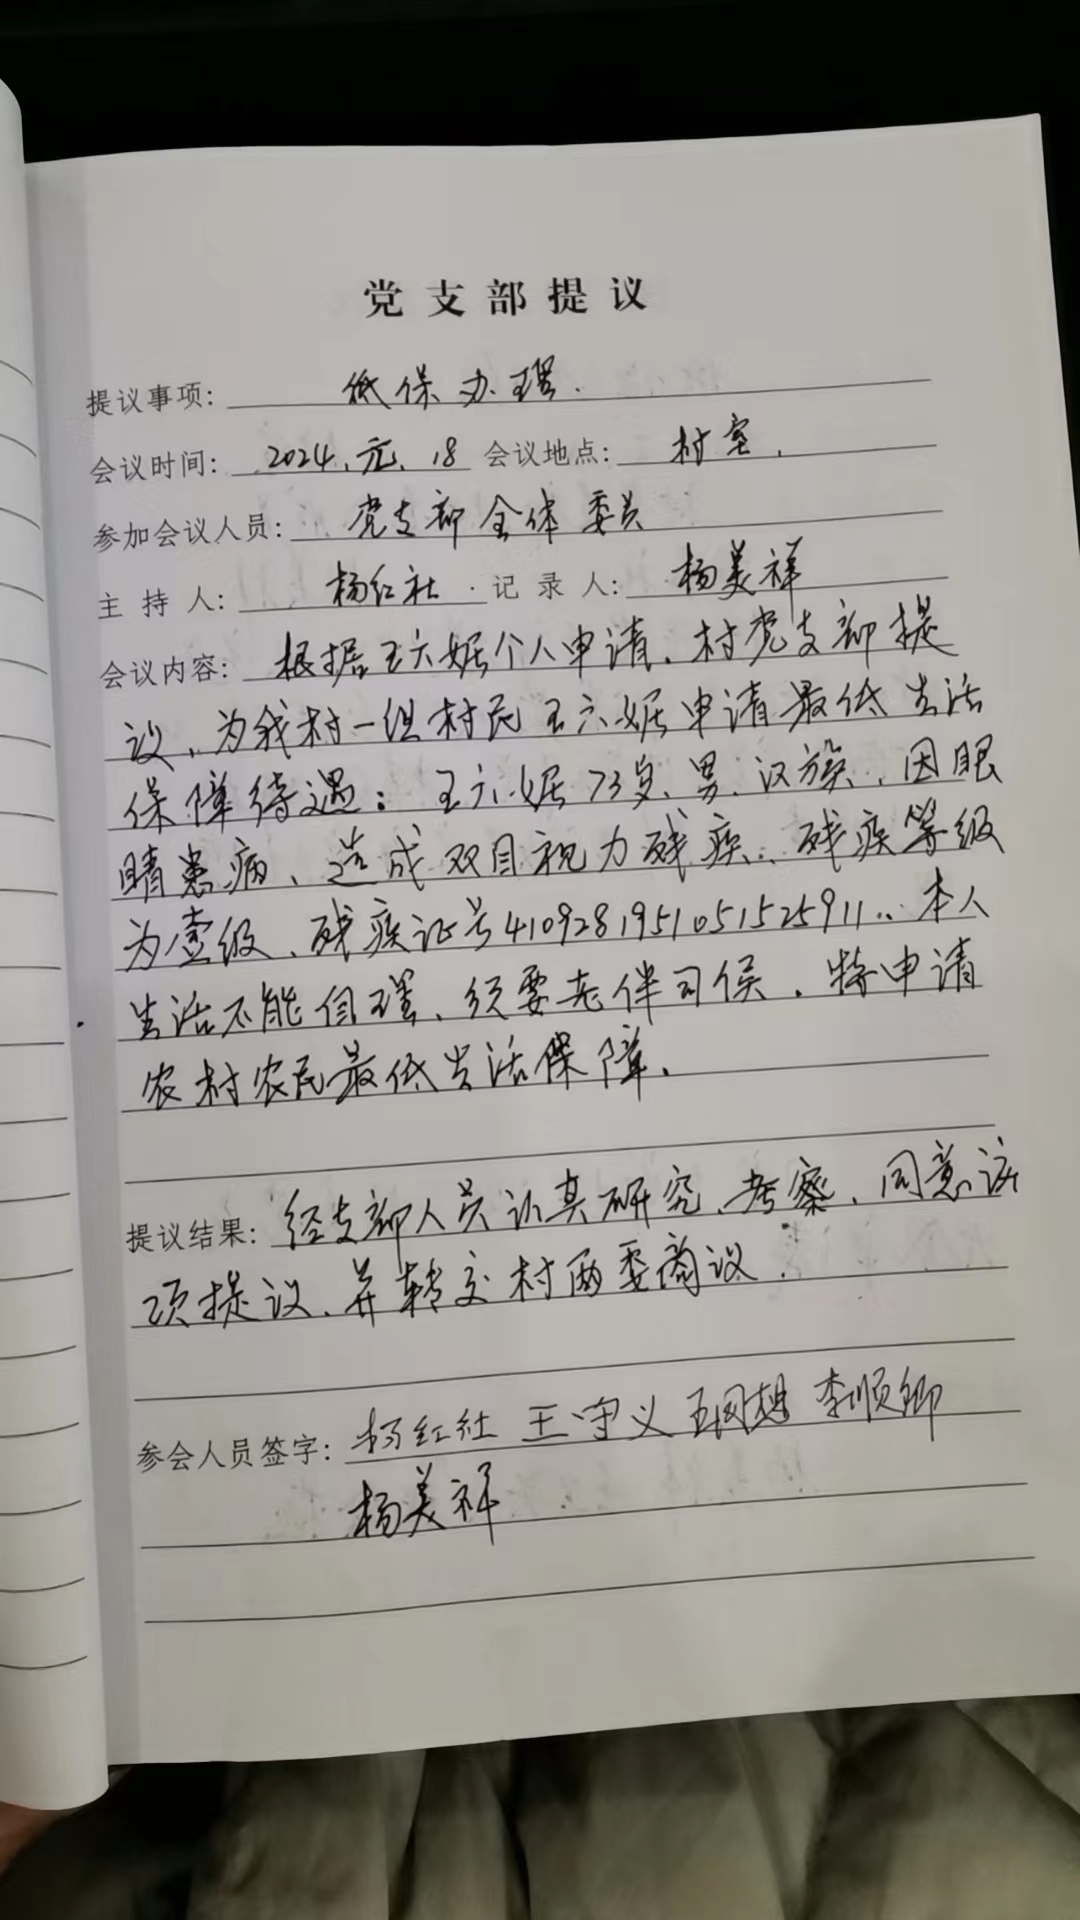 党支部提议
提议事项: 低保办理.
会议时间: 2024.元.18 会议地点: 村室.
参加会议人员: 党支部全体委员
主持人: 杨红社 记录人: 杨美祥
会议内容: 根据王六妮个人申请、村党支部提
议、为我村一组村民王六妮申请最低生活
保障待遇: 王六妮73岁、男、汉族、因眼
睛患病、造成双目视力残疾、残疾等级
为壹级、残疾证号4109281951051525911、本人
生活不能自理、须要老伴司侯、特申请
农村农民最低生活保障.
提议结果: 经支部人员认真研究、考察、同意该
项提议、并转交村两委商议.
参会人员签字: 杨红社 王守义 李顺卿
杨美祥